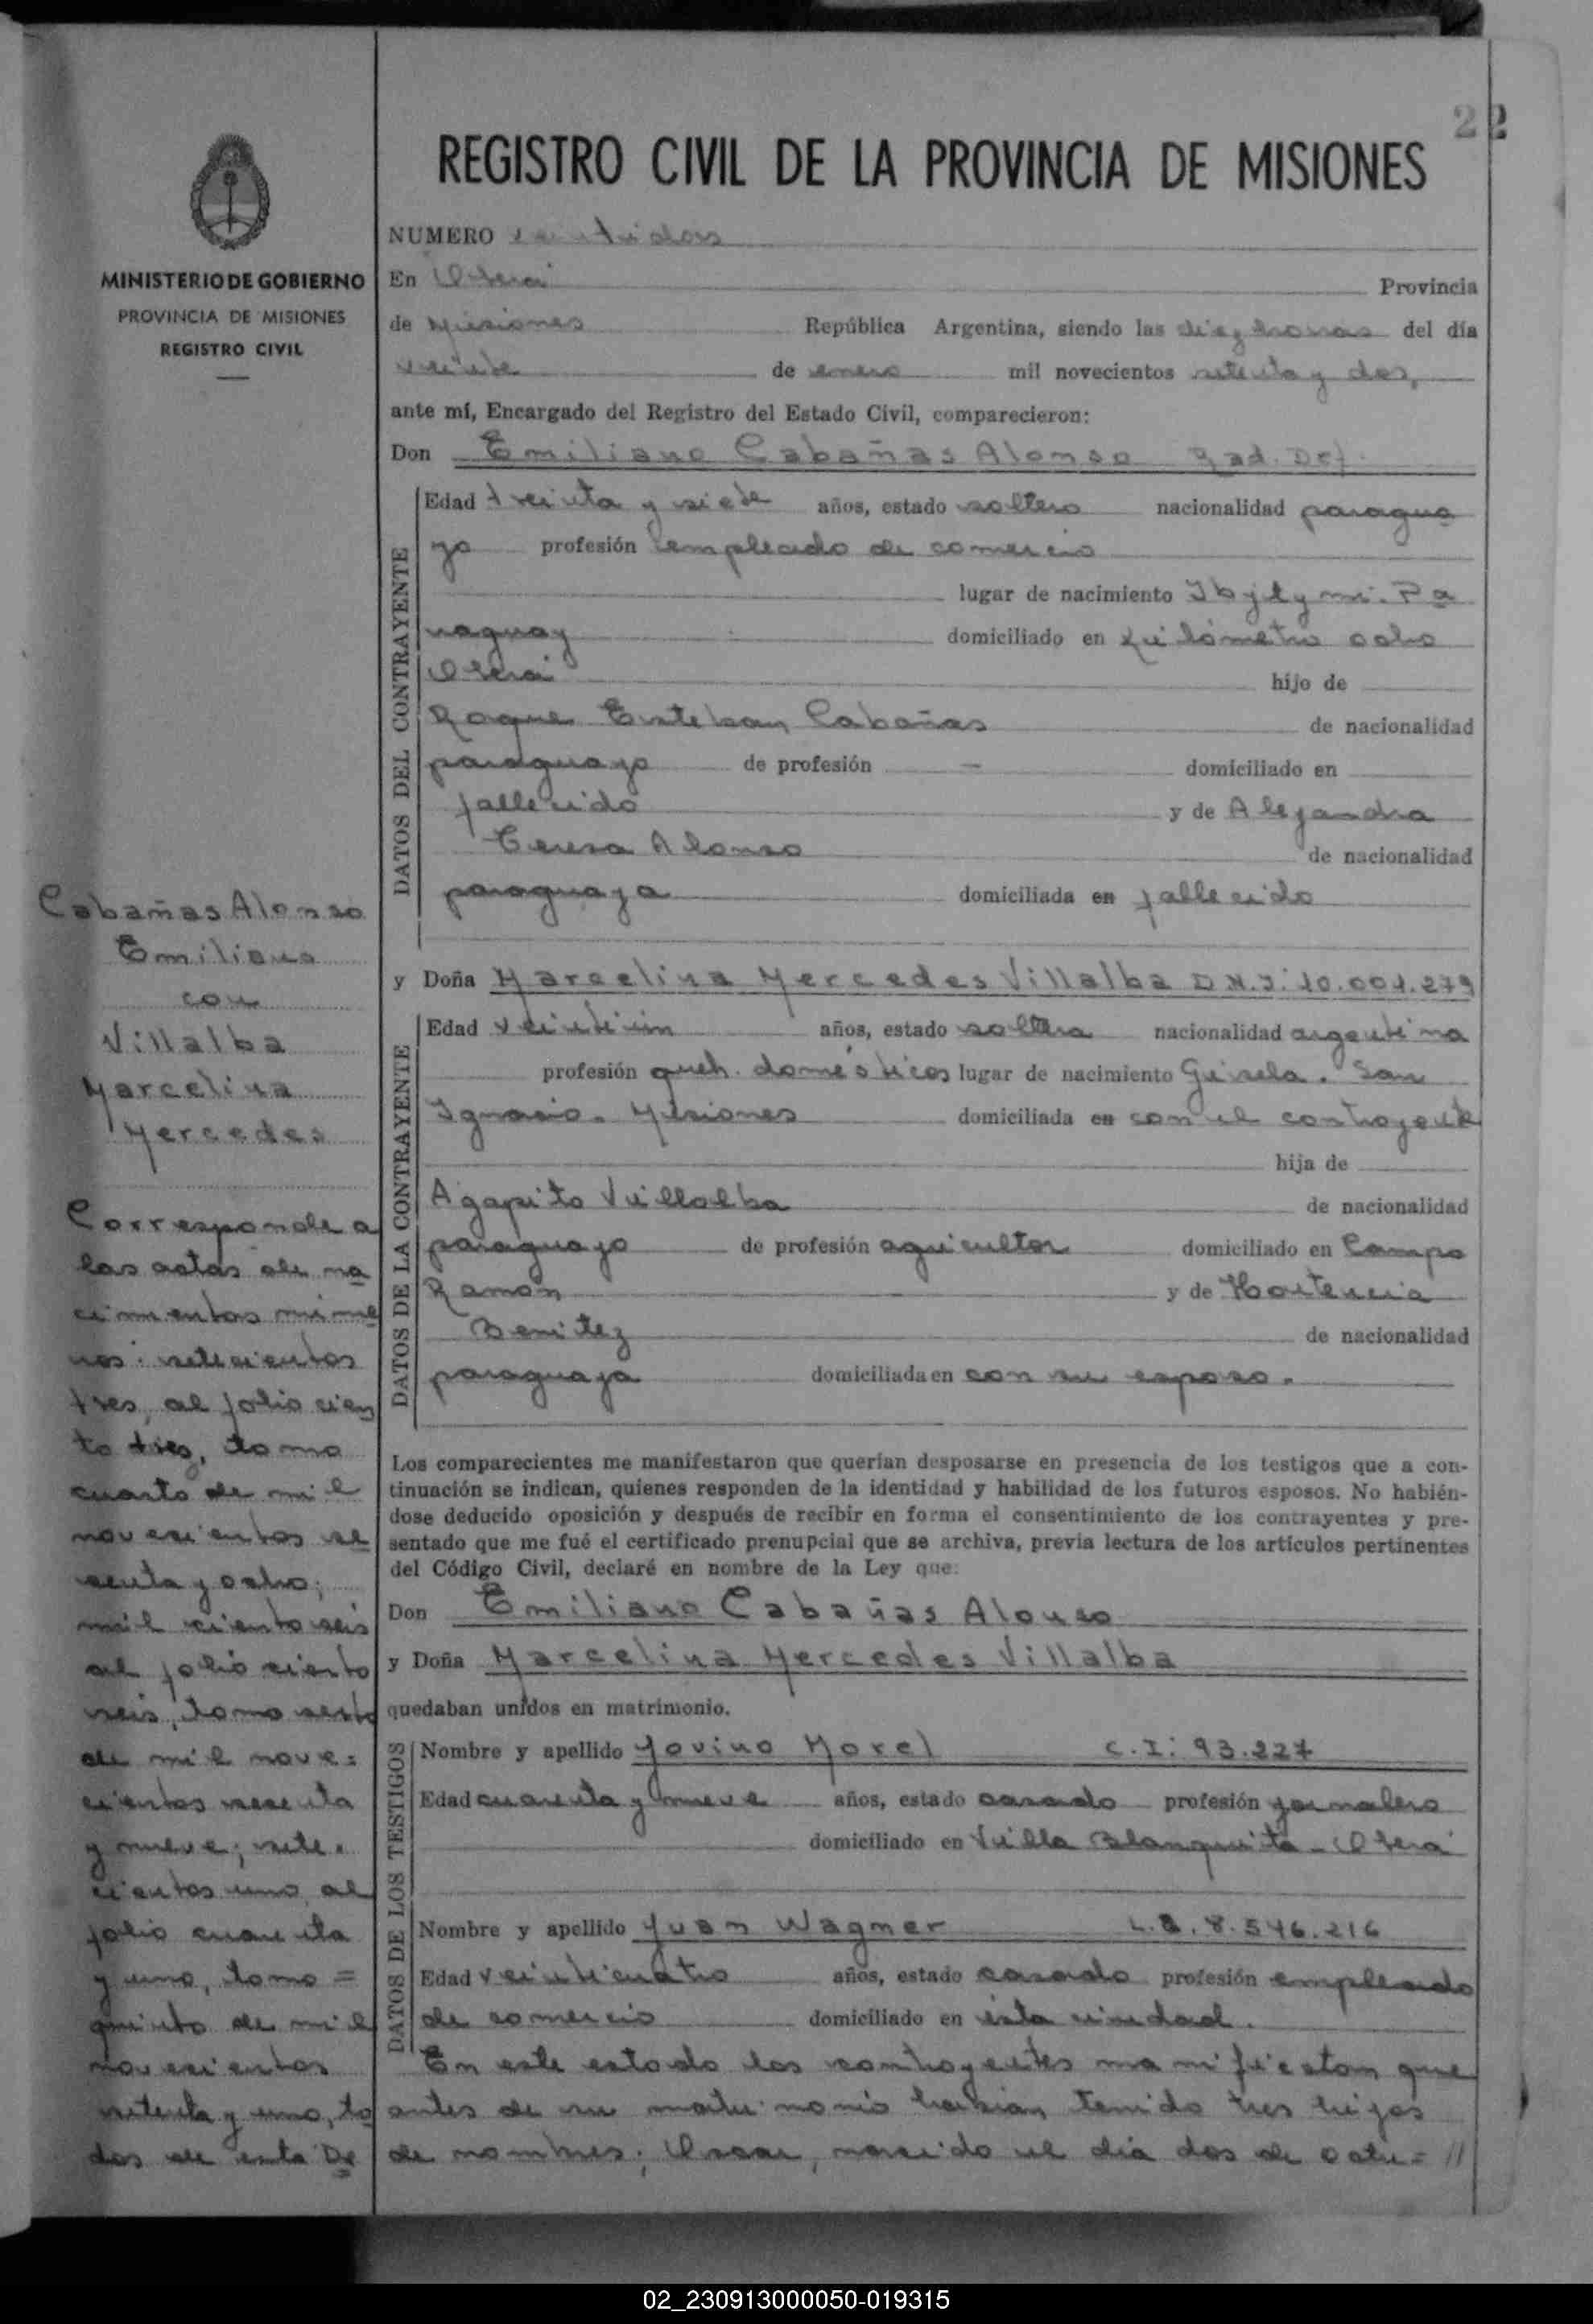 22
REGISTRO CIVIL DE LA PROVINCIA DE MISIONES
MINISTERIO DE GOBIERNO
PROVINCIA DE MISIONES
REGISTRO CIVIL
NUMERO veintidos
En Oberá Provincia
de Misiones República Argentina, siendo las diez horas del día
veinte de enero mil novecientos setenta y dos,
ante mí, Encargado del Registro del Estado Civil, comparecieron:
Don Emiliano Cabañas Alonso
DATOS DEL CONTRAYENTE
Edad treinta y siete años, estado soltero nacionalidad paragua
yo profesión empleado de comercio
lugar de nacimiento Ybytymí. Pa
raguay domiciliado en kilómetro ocho
Oberá hijo de
Roque Esteban Cabañas de nacionalidad
paraguayo de profesión — domiciliado en
fallecido y de Alejandra
Teresa Alonso de nacionalidad
paraguaya domiciliada en fallecido
y Doña Marcelina Mercedes Villalba D.N.I: 10.001.279
DATOS DE LA CONTRAYENTE
Edad veintiún años, estado soltera nacionalidad argentina
profesión queh. domésticos lugar de nacimiento Gisela. San
Ignacio. Misiones domiciliada en con el contrayente
hija de
Agapito Villalba de nacionalidad
paraguayo de profesión agricultor domiciliado en Campo
Ramón y de Hortencia
Benitez de nacionalidad
paraguaya domiciliada en con su esposo.
Los comparecientes me manifestaron que querían desposarse en presencia de los testigos que a con-
tinuación se indican, quienes responden de la identidad y habilidad de los futuros esposos. No habién-
dose deducido oposición y después de recibir en forma el consentimiento de los contrayentes y pre-
sentado que me fué el certificado prenupcial que se archiva, previa lectura de los artículos pertinentes
del Código Civil, declaré en nombre de la Ley que:
Don Emiliano Cabañas Alonso
y Doña Marcelina Mercedes Villalba
quedaban unidos en matrimonio.
DATOS DE LOS TESTIGOS
Nombre y apellido Jovino Morel C.I: 93.227
Edad cuarenta y nueve años, estado casado profesión jornalero
domiciliado en Villa Blanquita - Oberá
Nombre y apellido Juan Wagner L.E. 8.546.216
Edad veinticuatro años, estado casado profesión empleado
de comercio domiciliado en ésta ciudad.
En este estado los contrayentes manifiestan que
antes de su matrimonio habían tenido tres hijos
de nombres: Oscar, nacido el día dos de octu= //
Cabañas Alonso
Emiliano
con
Villalba
Marcelina
Mercedes
Corresponde a
las actas de na
cimientos núme
ros: setecientos
tres, al folio cien
to tres, tomo
cuarto de mil
novecientos se
senta y ocho;
mil ciento seis
al folio ciento
seis, tomo sexto
de mil nove=
cientos sesenta
y nueve; sete=
cientos uno al
folio cuarenta
y uno, tomo =
quinto de mil
novecientos
setenta y uno, to
dos de esta De
02_230913000050-019315